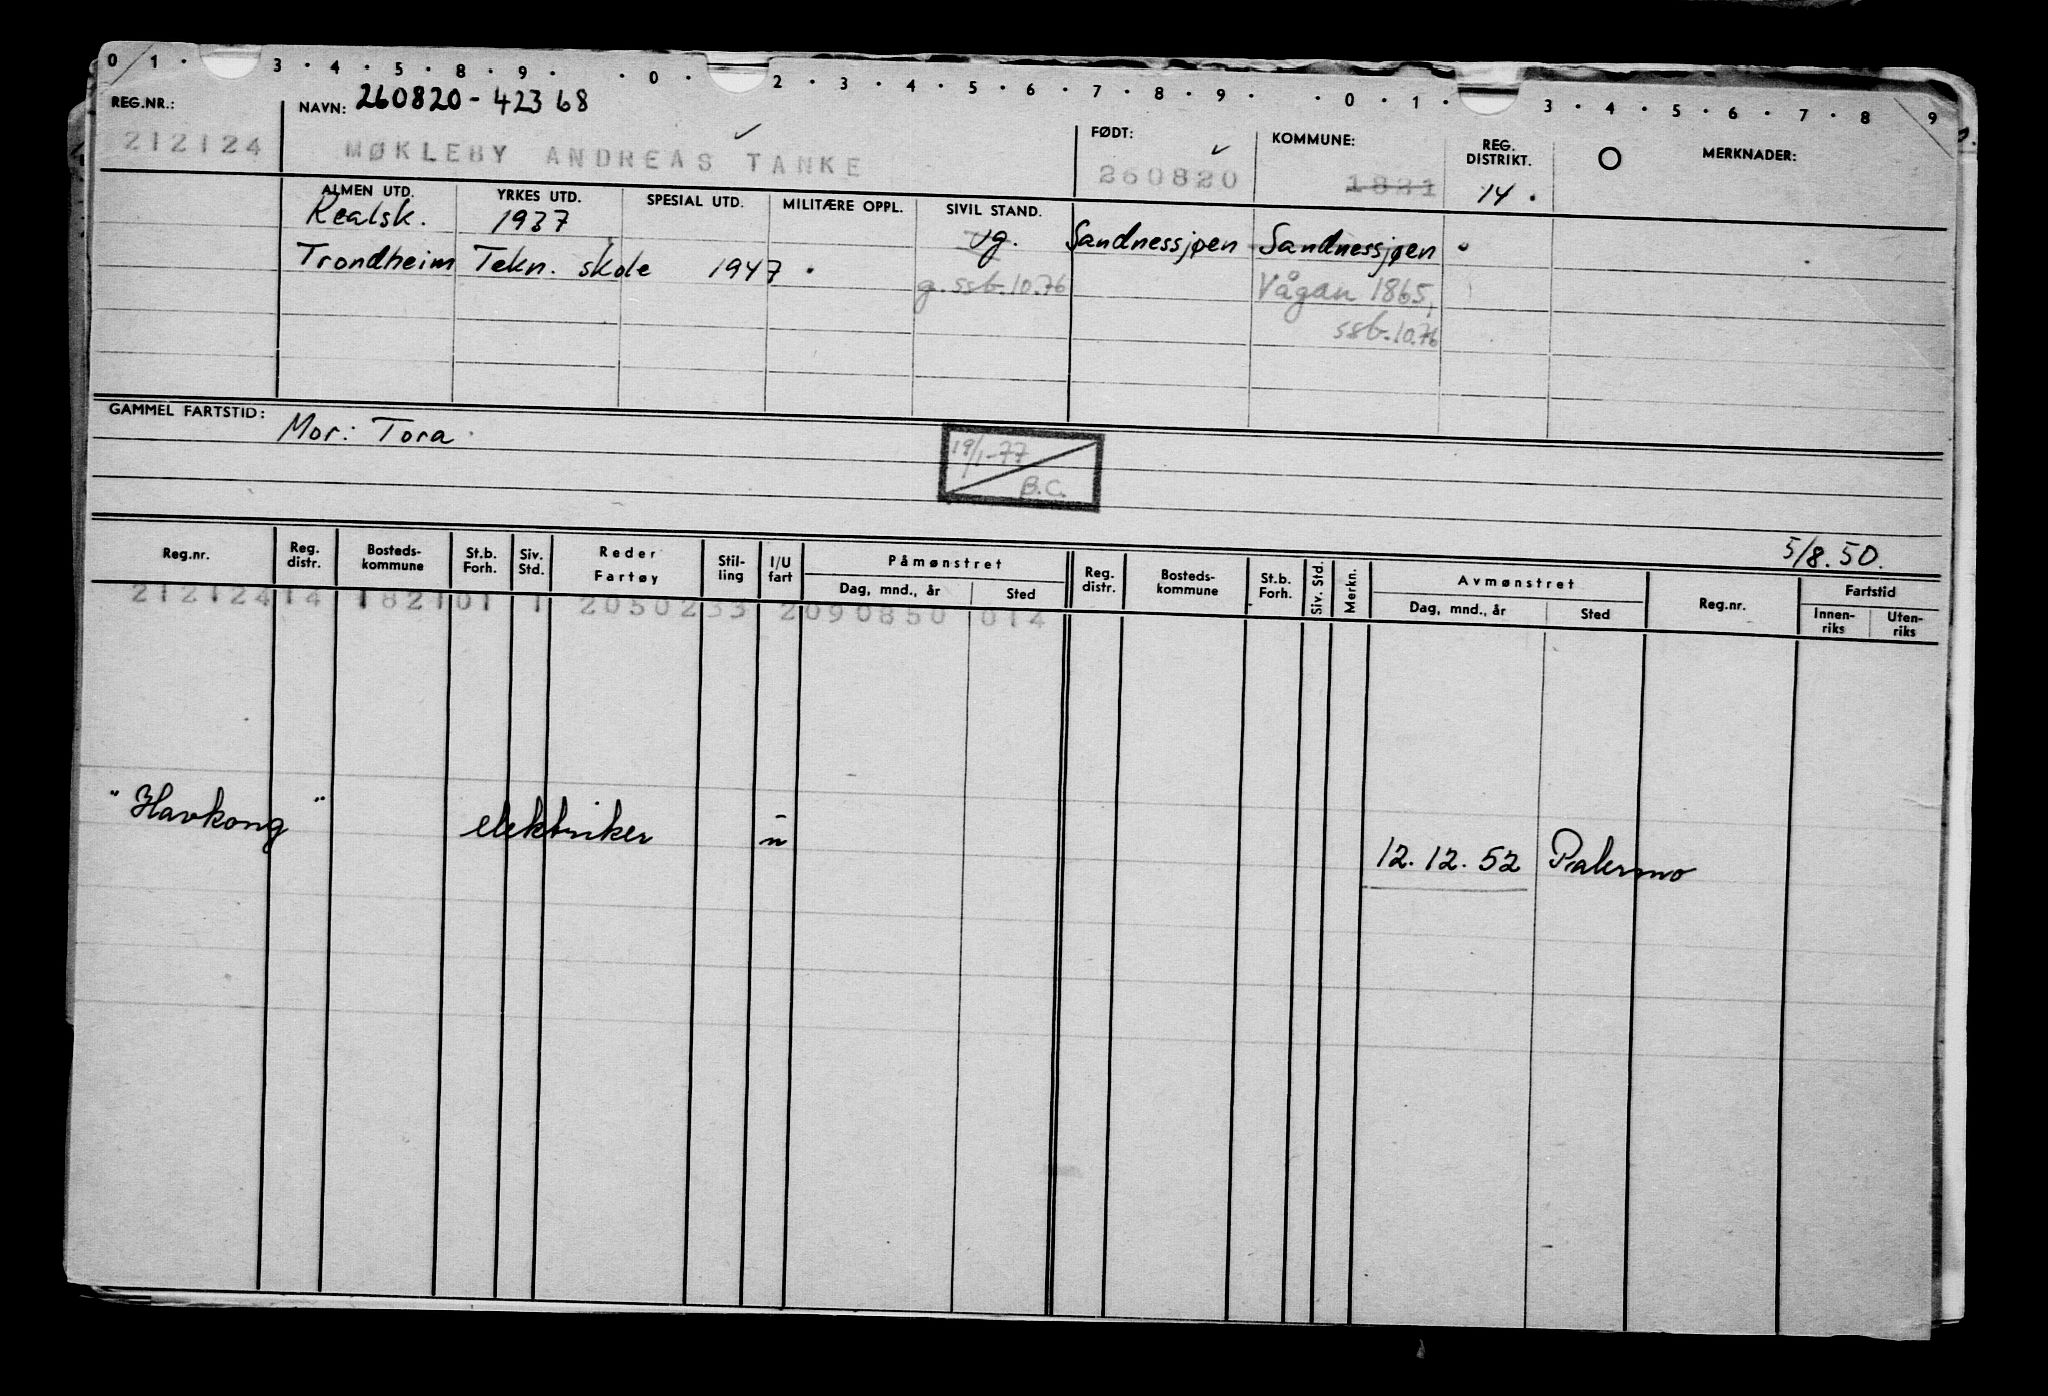 0 1 · 3 · 4 · 5 · 8 · 9 · · 0 · 2 · 3 · 4 · 5 · 6 · 7 · 8 · 9 · · 0 · 1 · 3 · 4 · 5 · 6 · 7 · 8 9
REG.NR.: NAVN: 260820-42368 FØDT: KOMMUNE: REG. DISTRIKT. O MERKNADER:
212124 MØKLEBY ANDREAS TANKE 260820 1821 14 .
ALMEN UTD. YRKES UTD. SPESIAL UTD. MILITÆRE OPPL. SIVIL STAND.
Realsk. 1937 ug. Sandnessjøen Sandnessjøen
Trondheim Tekn. skole 1947 . g. ssb. 10.76 Vågan 1865,
ssb. 10.76
GAMMEL FARTSTID: Mor: Tora
19/1-77
B.C.
5/8.50.
Reg.nr. Reg. distr. Bosteds-kommune St.b. Forh. Siv. Std. Reder Fartøy Stil-ling I/U fart Påmønstret Dag, mnd., år Sted Reg. distr. Bosteds-kommune St.b. Forh. Siv. Std. Merkn. Avmønstret Dag, mnd., år Sted Reg.nr. Fartstid Innen-riks Uten-riks
212124 14 1821 01 1 2050233 2090850 014
"Havkong" elektriker u 12.12.52 Palermo